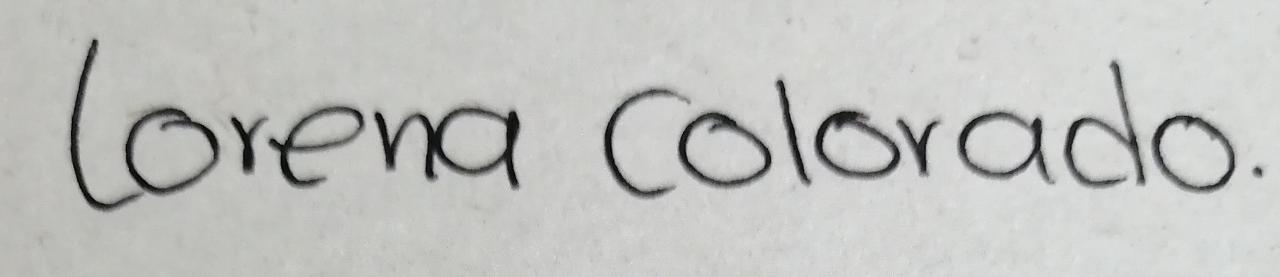 Lorena Colorado.